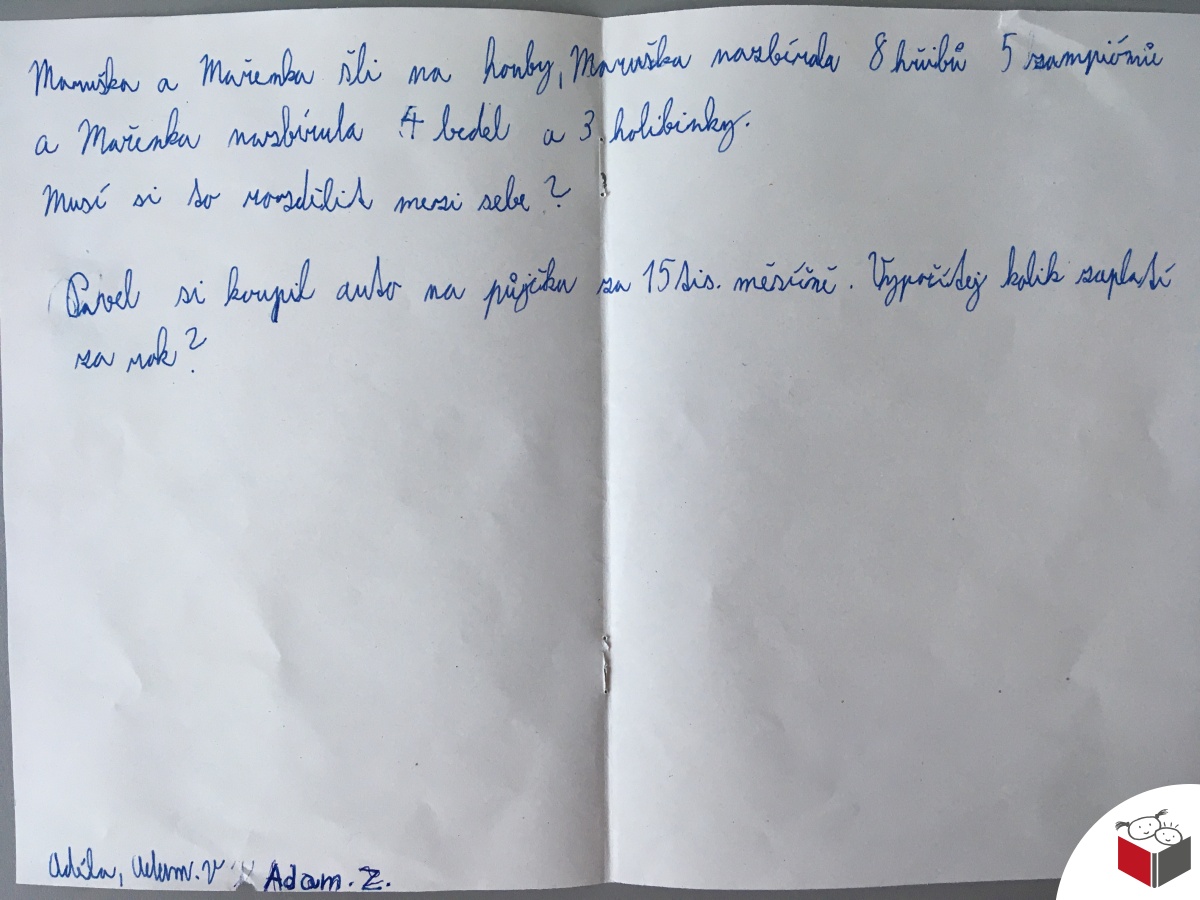 Maruška a Mařenka šli na houby, Maruška nazbírala 8 hřibů 5 zampiónů
a Mařenka nazbírala 4 bedel a 3 holibinky.
Musí si to rozdílit mezi sebe?
Pavel si koupil auto na půjčku za 15 tis. měsíčně. Vypočítej kolik zaplatí
za rok?
Adéla, Adam.V Adam.Z.